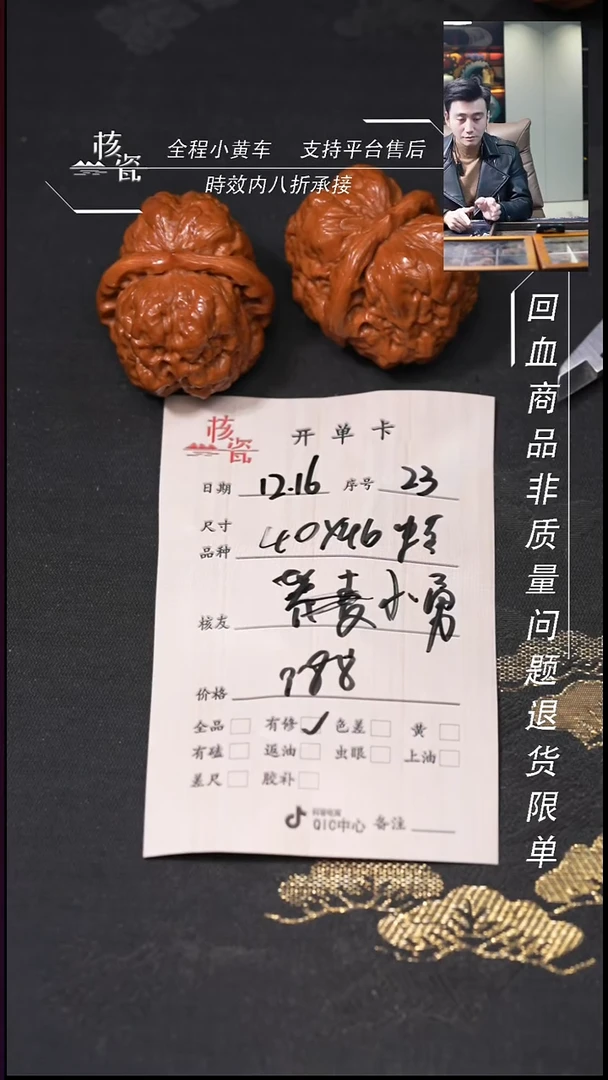 核瓷
全程小黄车 支持平台售后
時效内八折承接
回血商品非质量问题退货限单
核瓷
开单卡
日期 12.16 序号 23
尺寸
品种 40X46
核友 荞麦小勇
价格 788
全品 有修 ✓ 色差 黄
有磕 返油 虫眼 上油
差尺 胶补
抖音电商
QIC中心 备注